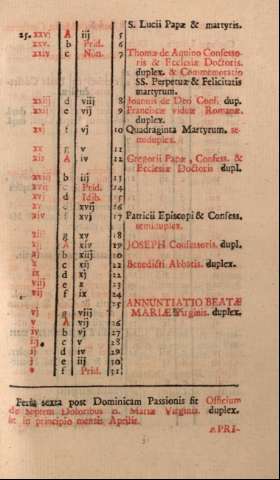 S. Lucii Papæ & martyris.
25. xxvj A iij 5
xxv. b Prid. 6
xxiv c Non. 7 Thomæ de Aquino Confesso-
ris & Ecclesiæ Doctoris.
duplex. & Commemoratio
SS. Perpetuæ & Felicitatis
martyrum.
xxiij d viij 8 Joannis de Deo Conf. dup.
xxij e vij 9 Francisce viduæ Romanæ.
duplex.
xxj f vj 10 Quadraginta Martyrum. se-
miduplex.
xx g v 11
xix A iv 12 Gregorii Papæ, Confess. &
Ecclesiæ Doctoris dupl.
xviij b iij 13
xvij c Prid. 14
xvj d Idib. 15
xv e xvij
xiv f xvj 17 Patricii Episcopi & Confess.
semiduplex.
xiij g xv 18
xij A xiv 19 JOSEPH Confessoris. dupl.
xj b xiij 20
x c xij 21 Benedicti Abbatis. duplex.
ix d xj 22
viij e x 23
vij f ix 24
vj g viij 25 ANNUNTIATIO BEATÆ
MARIÆ Virginis. duplex.
v A vij 26
iv b vj 27
iij c v 28
ij d iv 29
j e iij 30
f Prid. 31
Feria sexta post Dominicam Passionis fit Officium
de septem Doloribus B. Mariæ Virginis. duplex.
ut in principio mensis Aprilis.
APRI-